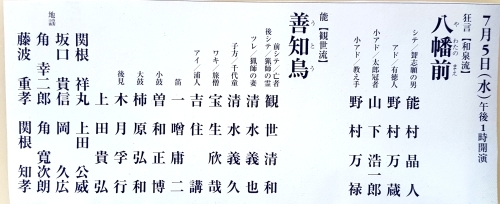 7月5日（水）午後1時開演
狂言【和泉流】
八幡前
やわたのまえ
シテ／聟志願の男 能村晶人
アド／有徳人 野村万蔵
小アド／太郎冠者 山下浩一郎
小アド／教え手 野村万禄
能【観世流】
善知鳥
うとう
前シテ／亡者
後シテ／猟師の霊 観世清和
ツレ／猟師の妻 清水義也
子方／千代童 清水義久
ワキ／旅僧 宝生欣哉
アイ／浦人 吉住講
笛 一噌庸二
小鼓 曽和正博
大鼓 柿原弘和
後見 木月孚行
上田貴弘
地謡
関根祥丸 上田公威
坂口貴信 岡久広
角幸二郎 角寛次朗
藤波重孝 関根知孝